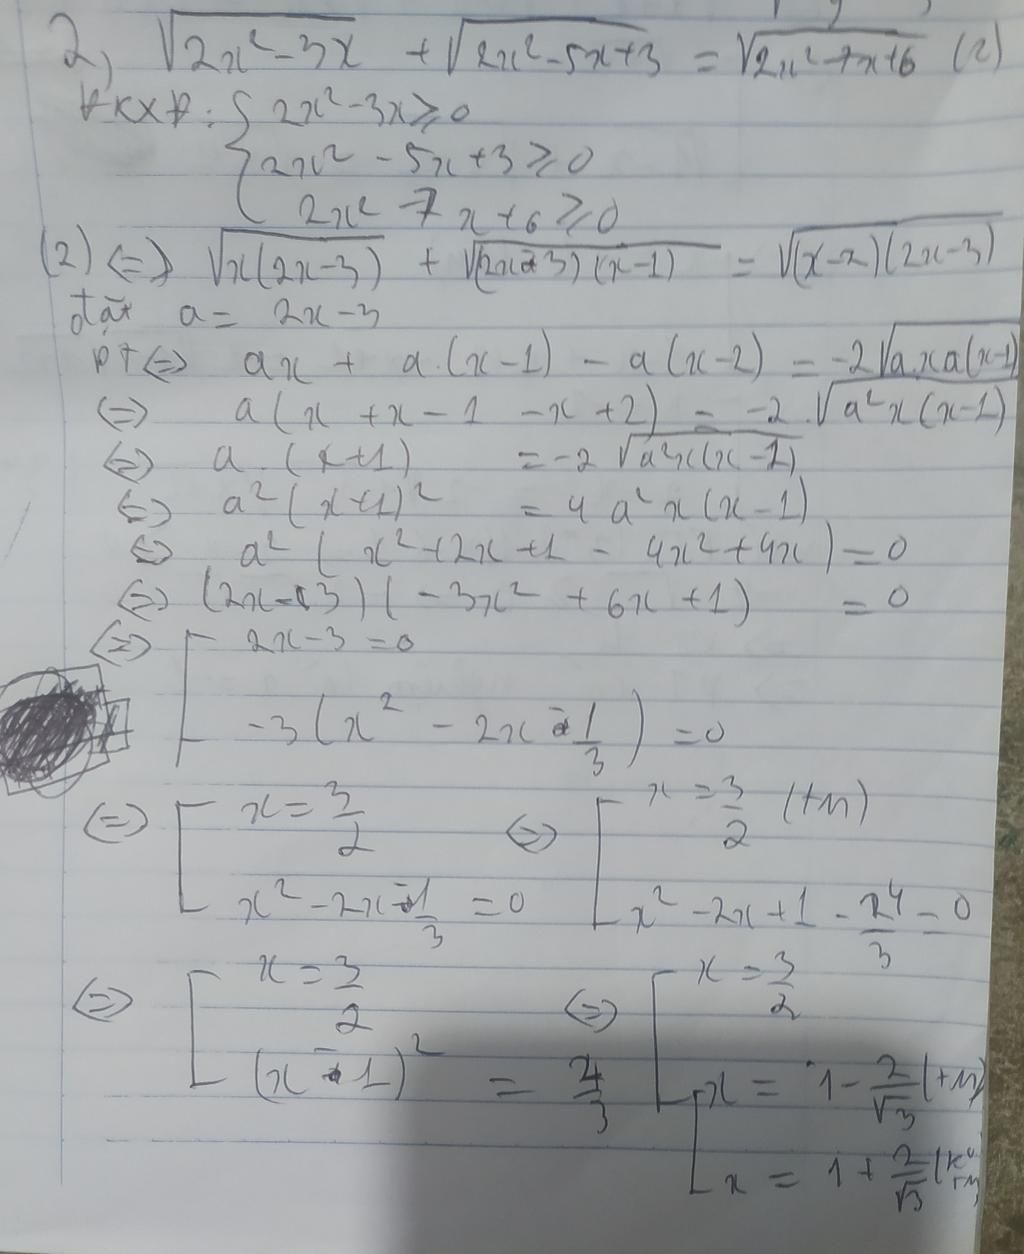 2, √(2x² - 3x) + √(2x² - 5x + 3) = √(2x² - 7x + 6) (2)
ĐKXĐ: { 2x² - 3x ≥ 0
2x² - 5x + 3 ≥ 0
2x² - 7x + 6 ≥ 0
(2) <=> √(x(2x-3)) + √((2x-3)(x-1)) = √((x-2)(2x-3))
đặt a = 2x - 3
PT <=> ax + a.(x-1) - a(x-2) = -2√(a.xa(x-1))
<=> a(x + x - 1 - x + 2) = -2.√(a²x(x-1))
<=> a.(x+1) = -2√(a²x(x-1))
<=> a²(x+1)² = 4a²x(x-1)
<=> a²(x² + 2x + 1 - 4x² + 4x) = 0
<=> (2x-3)(-3x² + 6x + 1) = 0
<=> [ 2x - 3 = 0
-3(x² - 2x - 1/3) = 0
<=> [ x = 3/2 <=> [ x = 3/2 (tm)
x² - 2x - 1/3 = 0 x² - 2x + 1 - 4/3 = 0
<=> [ x = 3/2 <=> [ x = 3/2
(x - 1)² = 4/3 [ x = 1 - 2/√3 (tm)
x = 1 + 2/√3 (k° tm)